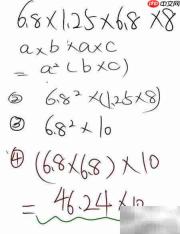 中文
6.8×1.25×6.8×8
a×b×a×c
=a²(b×c)
② 6.8²×(1.25×8)
③ 6.8²×10
④ (6.8×6.8)×10
=46.24×10